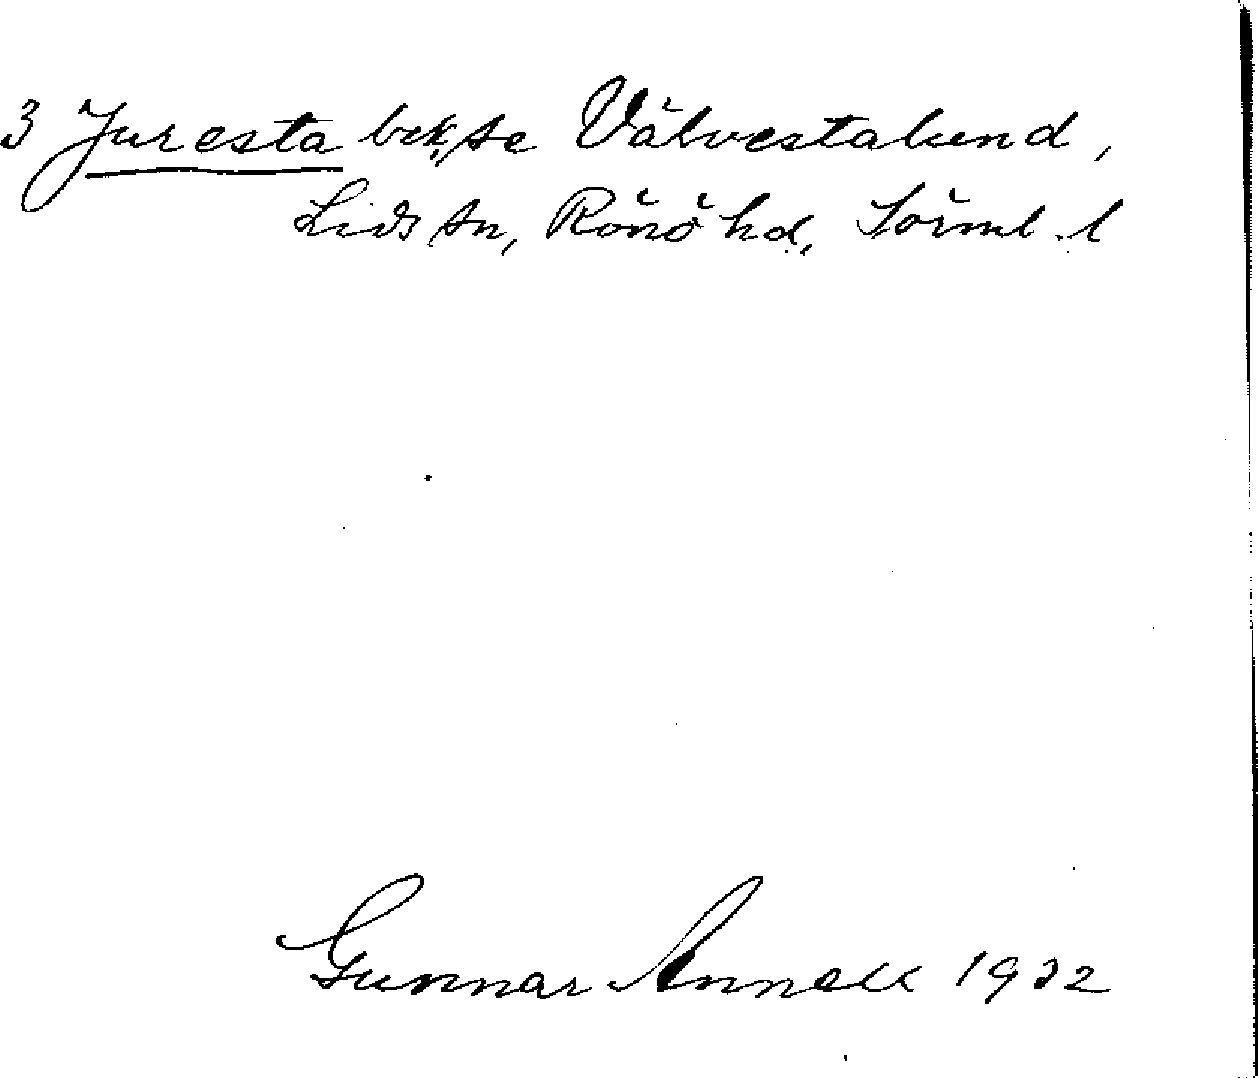 3 Juresta bck, se Välvestalund,
Lids sn, Rönö hd, Sörml. l
Gunnar Annell 1932